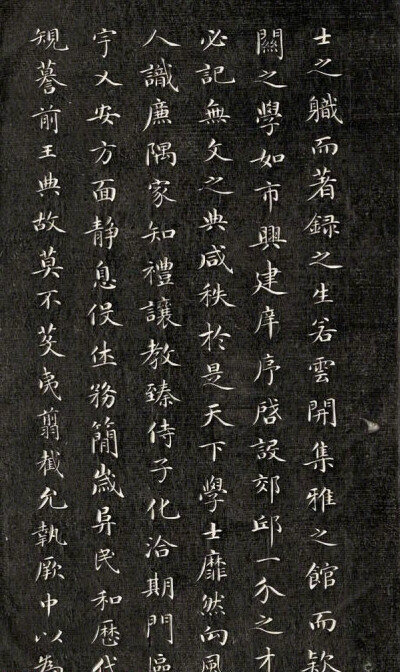 士之職而著録之生若雲開集雅之館而欵
關之學如市興建庠序啓設郊邱一介之才
必記無文之典咸秩於是天下學士靡然向風
人識廉隅家知禮讓教臻侍子化洽期門區
宇乂安方面靜息役休務簡歲阜民和歷代
規謩前王典故莫不芟夷翦截允執厥中以為